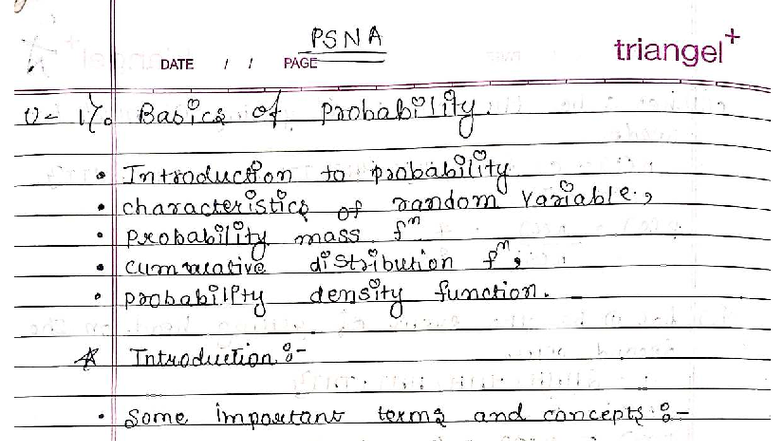 PSNA
triangel+
DATE / / PAGE
U- 1% Basics of probability.
• Introduction to probability
• characteristics of random variable,
• probability mass fⁿ
• cummulative distribution fⁿ,
• probability density function.
* Introduction :-
• Some important terms and concepts :-